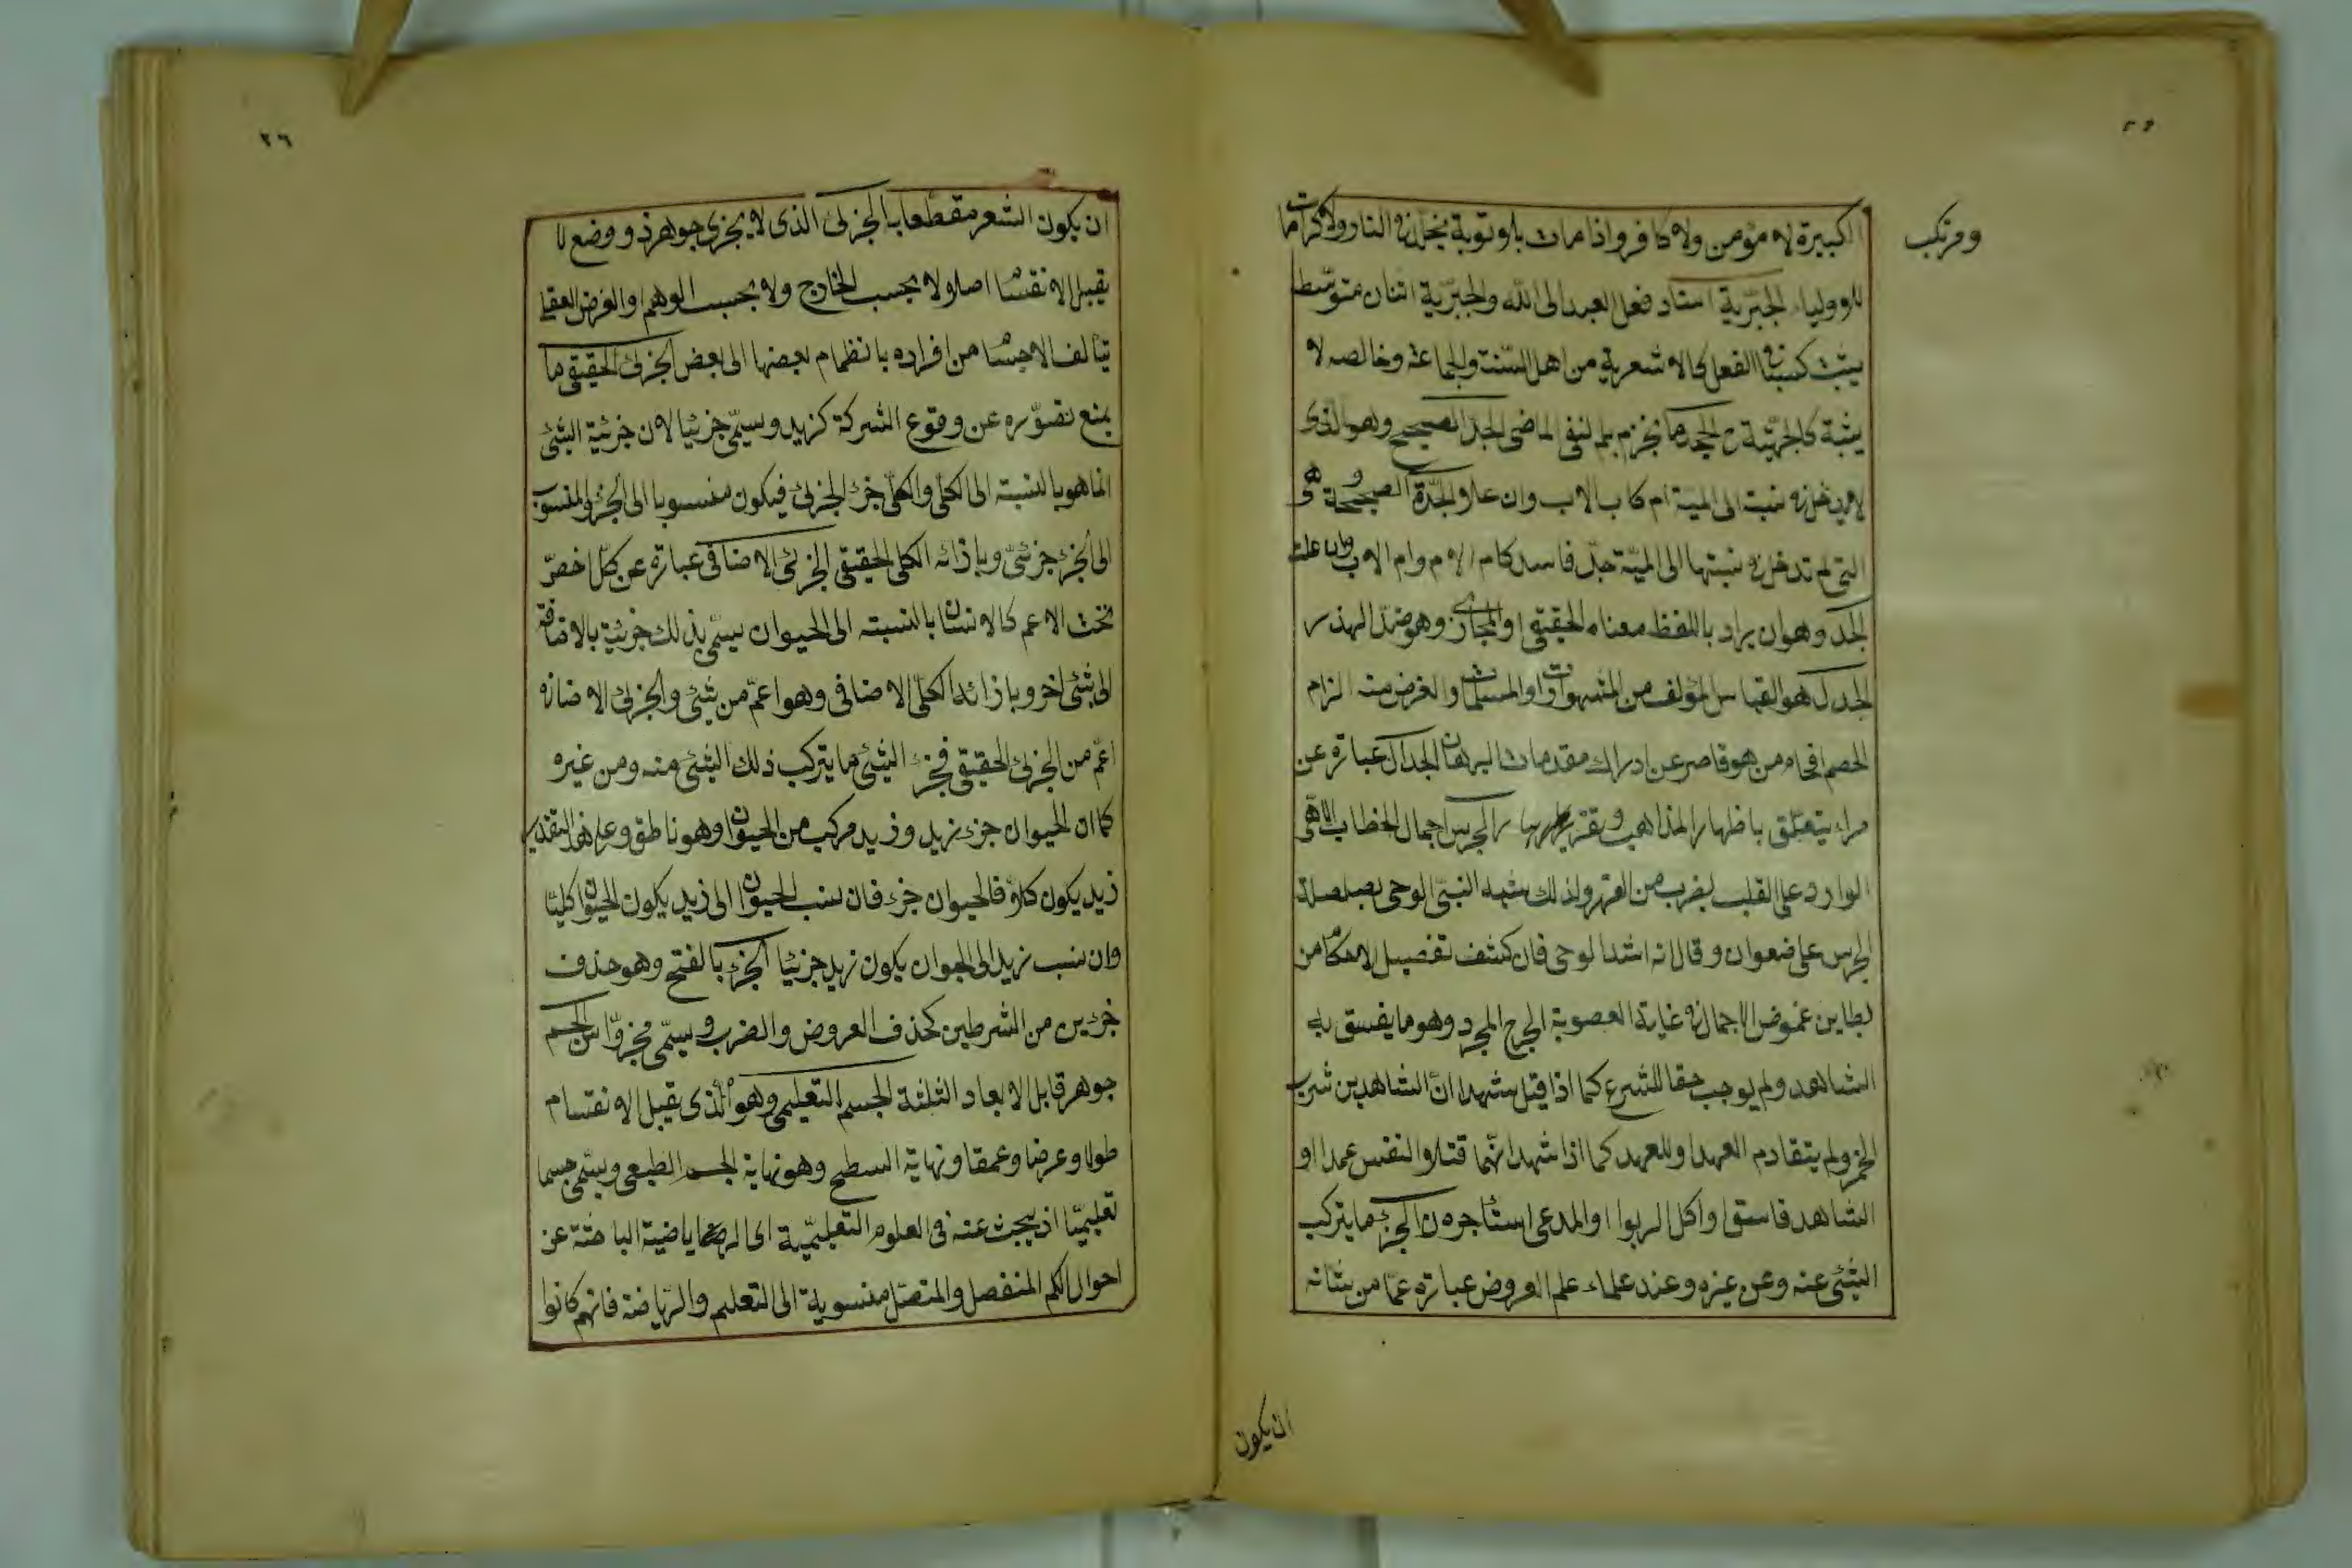 ومرتكب
الكبيرة لا مؤمن ولا كافر واذا مات بلا توبة يخلد في النار ولا كرامات
للاولياء الجبرية اسناد فعل العبد الى الله والجبرية اثنان متوسط
يثبت كسبا في الفعل كالاشعرية من اهل السنة والجماعة وخالصه لا
يثبته كالجهمية الجحد ما انجزم بلم لنفى الماضى الجد الصحيح وهو الذى
لا يدخل في نسبته الى الميت ام كاب الاب وان علا والجدة الصحيحة وهى
التى لم تدخل في نسبتها الى الميت جد فاسد كام الام وام الاب وان علت
الجد وهو ان يراد باللفظ معناه الحقيقى او المجازى وهو ضد الهذر
الجدل هو القياس المؤلف من المشهورات او المسلمات والغرض منه الزام
الخصم افحام من هو قاصر عن ادراك مقدمات البرهان الجدال عبارة عن
مراء يتعلق باظهار المذاهب وتقريرها الجرس اجمال الخطاب الالهى
الوارد على القلب بضرب من القهر ولذلك شبه النبى الوحى بصلصلة
الجرس على صفوان وقال انه اشد الوحى فان كشف تفصيل الاحكام من
بطاين غموض الاجمال في غاية الصعوبة الجرح المجرد وهو ما يفسق به
الشاهد ولم يوجب حقا للشرع كما اذا قتل شهدا ان الشاهدين شرب
الخمر ولم يتقادم العهد او للعبد كما اذا شهد انهما قتلا النفس عمدا او
الشاهد فاسق او اكل الربوا او المدعى استاجره الجزء ما يتركب
الشئ عنه وعن غيره وعند علماء علم العروض عبارة عما من شانه
ان يكون
٢٦
ان يكون الشعر مقطعا به الجزئ الذى لا يتجزى جوهر ذو وضع لا
يقبل الانقسام اصلا ولا بحسب الخارج ولا بحسب الوهم والفرض العقلى
تتالف الاجسام من افراده بانظمام بعضها الى بعض الجزئ الحقيقى ما
يمنع تصوره عن وقوع الشركة كزيد وسيمى جزئيا لان جزئية الشئ
انما هو بالنسبته الى الكلى والكلى جزء الجزئ فيكون منسوبا الى الجزء والمنسوب
الى الجزء جزئى وبازائه الكلى الحقيقى الجزئى الاضافى عبارة عن كل اخص
تحت الاعم كالانسان بالنسبته الى الحيوان يسمى بذلك جزئية بالاضافة
الى شئ اخر وبازائه الكلى الاضافى وهو اعم من شئ والجزئ الاضافى
اعم من الجزئ الحقيقى فجزء الشئ ما يتركب ذلك الشئ منه ومن غيره
كما ان الحيوان جزء زيد وزيد مركب من الحيوان وهو ناطق وعلى هذا التقدير
زيد يكون كلا فالحيوان جزء فان نسب الحيوان الى زيد يكون الحيوان كليا
وان نسب زيد الى الحيوان يكون زيد جزئيا الجزء بالفتح وهو حذف
جزءين من الشرطين كحذف العروض والضرب وسيمى مجزوا الجسم
جوهر قابل الابعاد الثلثة الجسم التعليمى وهو الذى يقبل الانقسام
طولا وعرضا وعمقا ونهاية السطح وهو نهاية الجسم الطبعى ويسمى جسما
تعليميا اذ يبحث عنه فى العلوم التعليمية اى الرياضية الباحثة عن
احوال الكم المنفصل والمتصل منسوبة الى التعليم والرياضة فانهم كانوا